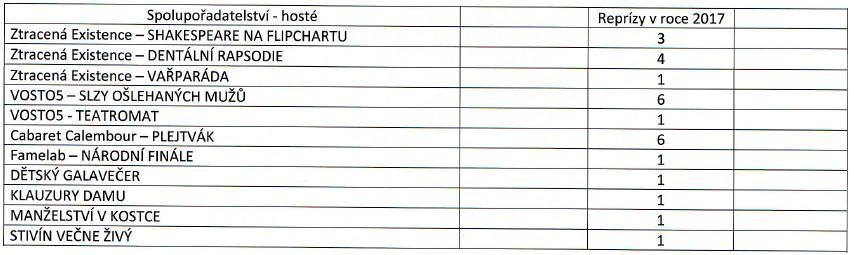 Spolupořadatelství - hosté Reprízy v roce 2017
Ztracená Existence – SHAKESPEARE NA FLIPCHARTU 3
Ztracená Existence – DENTÁLNÍ RAPSODIE 4
Ztracená Existence – VAŘPARÁDA 1
VOSTO5 – SLZY OŠLEHANÝCH MUŽŮ 6
VOSTO5 - TEATROMAT 1
Cabaret Calembour – PLEJTVÁK 6
Famelab – NÁRODNÍ FINÁLE 1
DĚTSKÝ GALAVEČER 1
KLAUZURY DAMU 1
MANŽELSTVÍ V KOSTCE 1
STIVÍN VEČNE ŽIVÝ 1